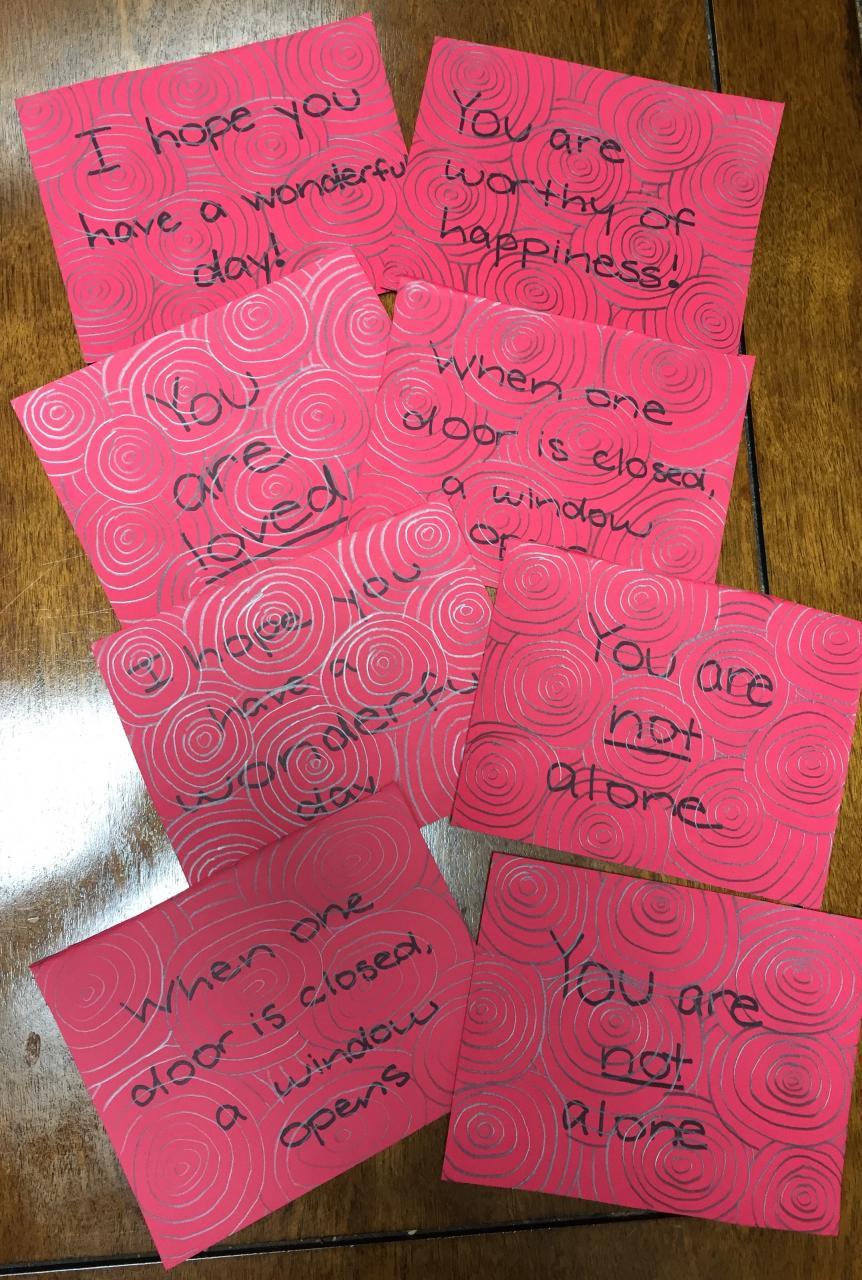 I hope you
have a wonderful
day!
You are
worthy of
happiness!
You
are
loved
When one
door is closed,
a window
I hope you
have a
wonderful
day
You are
not
alone
When one
door is closed,
a window
opens
You are
not
alone